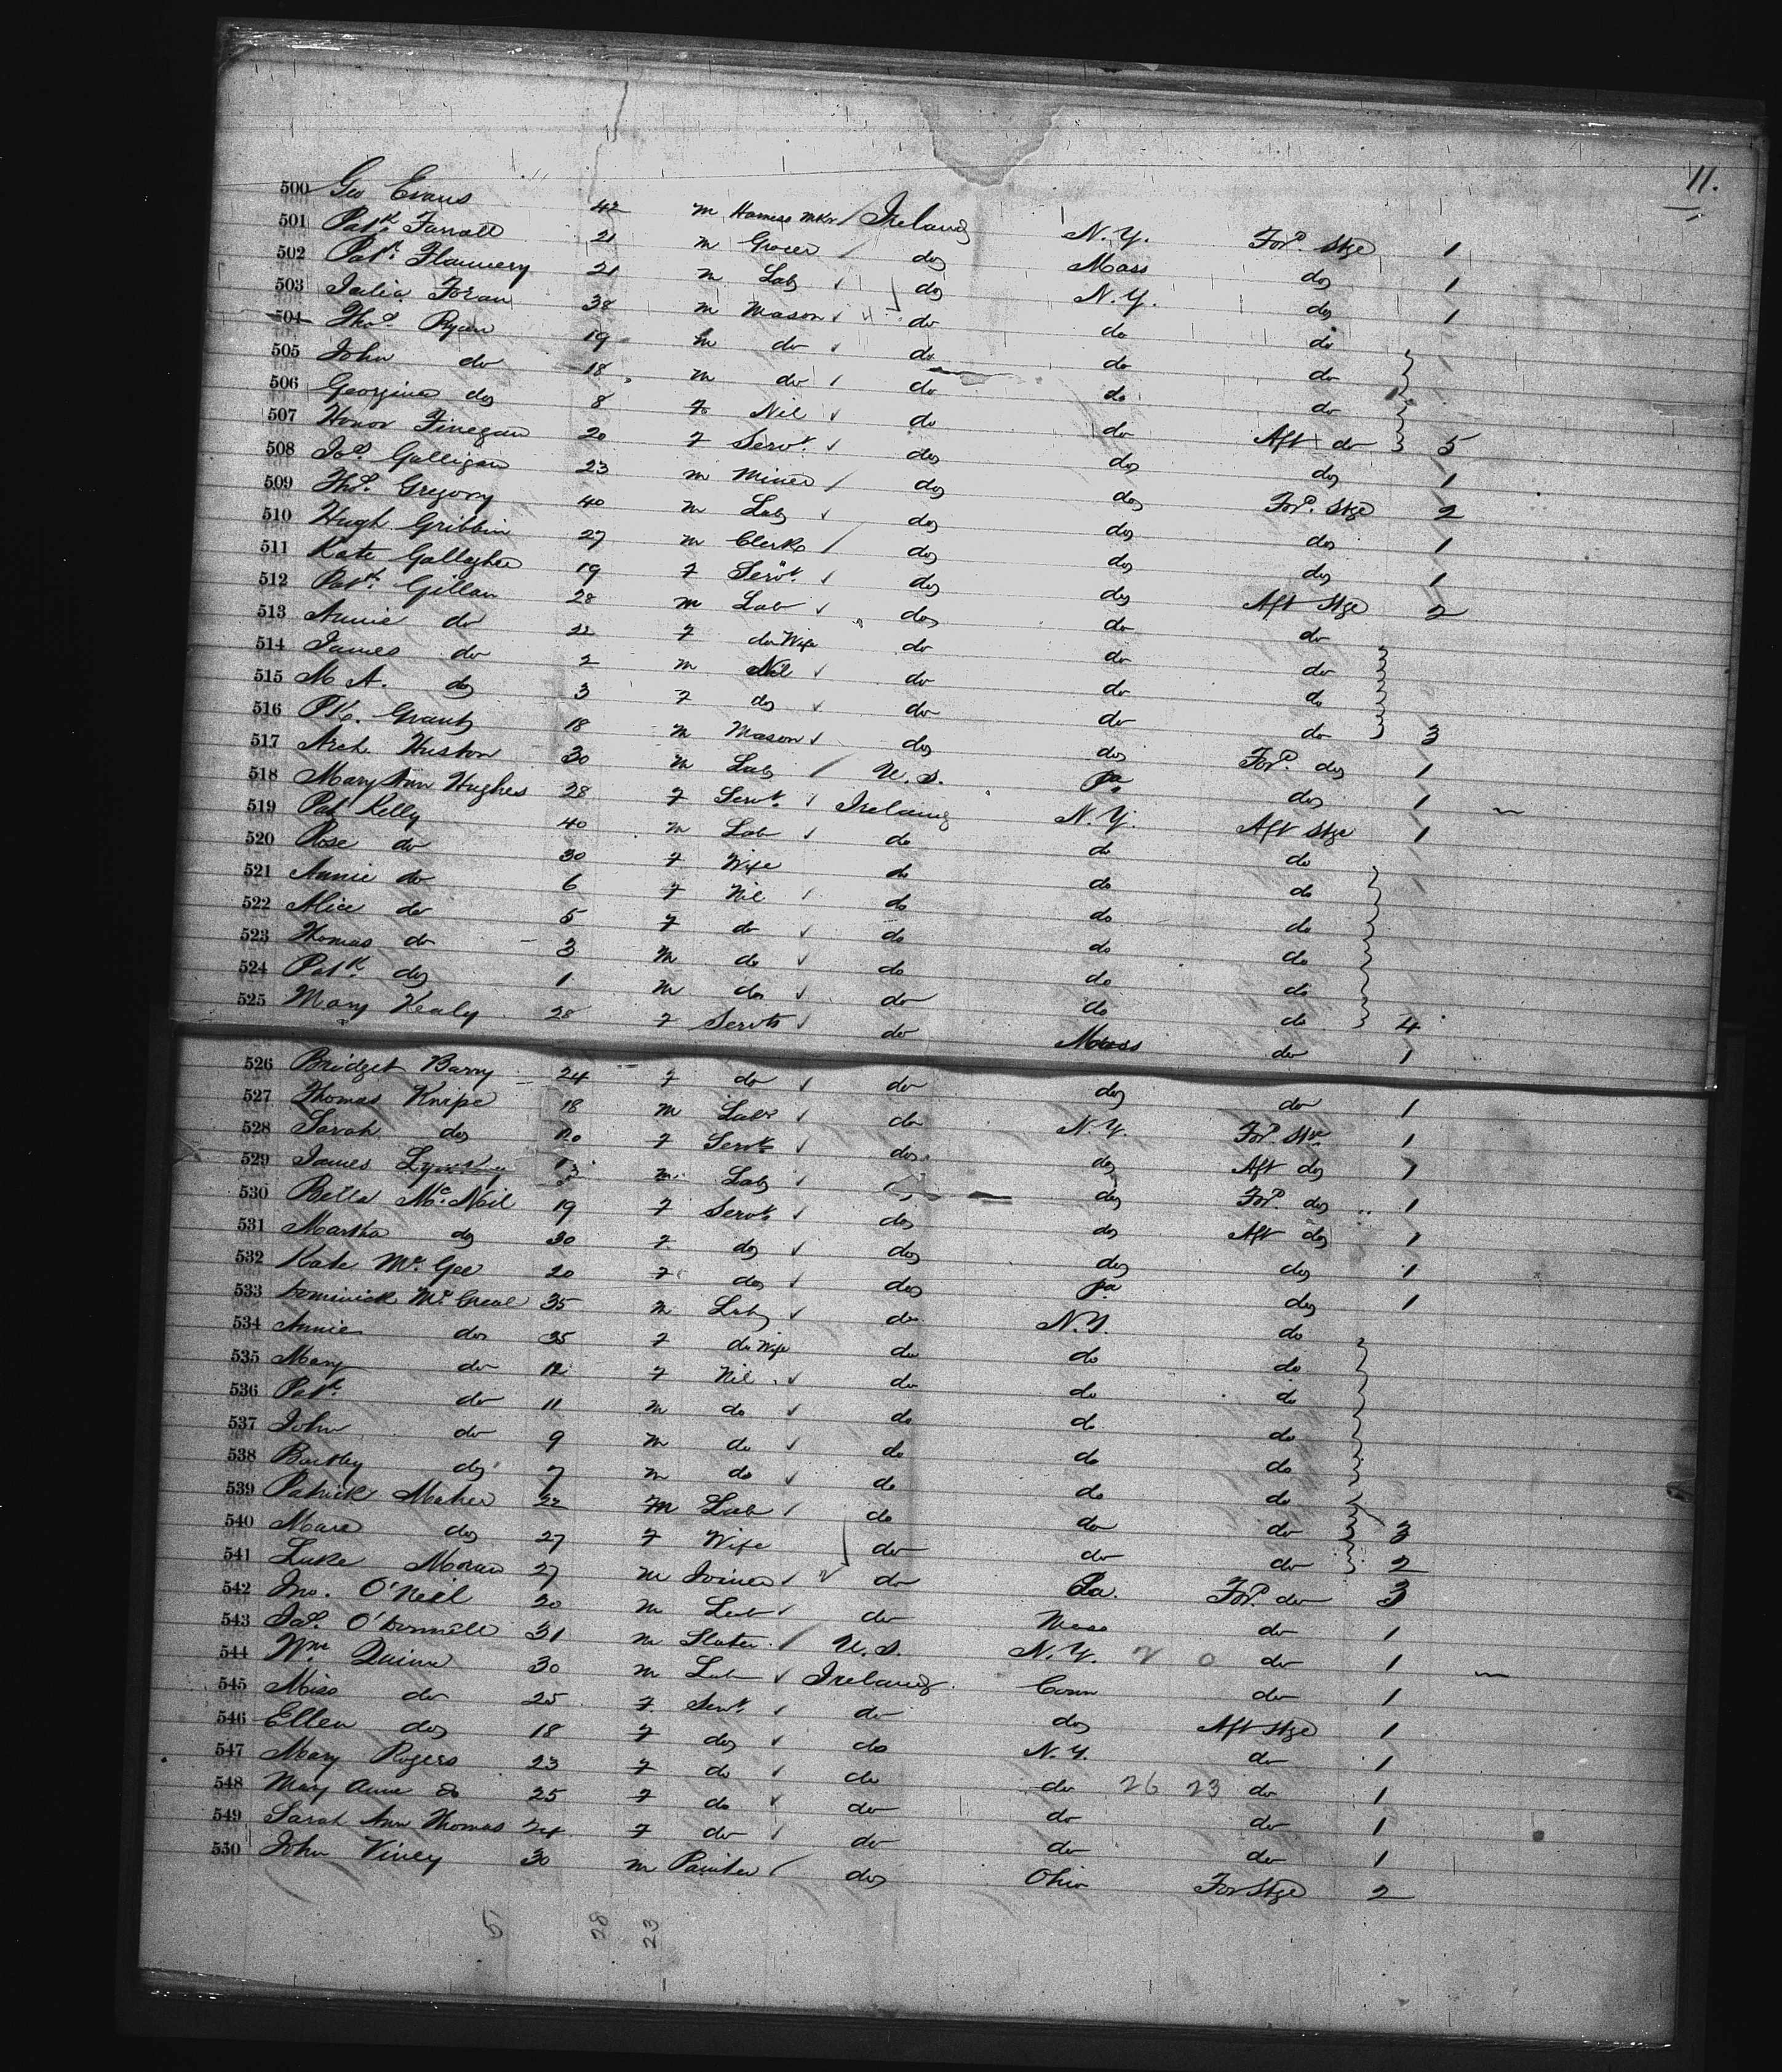 11.
500 Geo Evans 42 m Harness Mkr / Ireland N.Y. For^d. Stge 1
501 Pat^k. Farrall 21 m Grocer / do Mass do 1
502 Pat^k. Flannery 21 m Lab ✓ do N.Y. do 1
503 Julia Foran 38 m Mason ✓ do do do
504 Tho^s. Ryan 19 m do ✓ do do do
505 John do 18 m do / do do do
506 Georgina do 8 f Nil ✓ do do Aft do 5
507 Honor Finegan 20 f Serv^t. ✓ do do do 1
508 Jo^s. Galligan 23 m Miner / do do For^d. Stge 2
509 Tho^s. Gregory 40 m Lab ✓ do do do 1
510 Hugh Gribbin 27 m Clerk / do do do 1
511 Kate Gallagher 19 f Serv^t. / do do Aft Stge 2
512 Pat^k. Gillan 28 m Lab ✓ do do do
513 Annie do 22 f do Wife do do do
514 James do 2 m Nil ✓ do do do
515 M A. do 3 f do ✓ do do do 3
516 PK. Grant 18 m Mason ✓ do do For^d. do 1
517 Arch Huston 30 m Lab / U.S. Pa do 1
518 Mary Ann Hughes 28 f Serv^t. / Ireland N.Y. Aft Stge 1
519 Pat Kelly 40 m Lab ✓ do do do
520 Rose do 30 f Wife do do do
521 Annie do 6 f Nil / do do do
522 Alice do 5 f do ✓ do do do
523 Thomas do 3 m do ✓ do do do
524 Pat^k. do 1 m do ✓ do do do 4
525 Mary Kealy 28 f Servt ✓ do Mass do 1
526 Bridget Barry 24 f do ✓ do do do 1
527 Thomas Knipe 18 m Lab^r ✓ do N.Y. For^d. Stge 1
528 Sarah do 20 f Serv^t ✓ do do Aft do 1
529 James m Lab ✓ do For^d. do 1
530 Bella M^c.Neil 19 f Serv^t. ✓ do do Aft do 1
531 Martha do 30 f do ✓ do do do 1
532 Kate M^c.Gee 20 f do ✓ do Pa do 1
533 Dominick M^c.Greal 35 m Lab ✓ do N.Y. do
534 Annie do 35 f do Wife do do do
535 Mary do 12 f Nil ✓ do do do
536 Pat^k. do 11 m do ✓ do do do
537 John do 9 m do ✓ do do do
538 Bartley do 7 m do ✓ do do do 3
539 Patrick Maher 22 m Lab / do do do
540 do 27 f Wife do do do 2
541 Luke Moran 27 m Joiner ✓ do Pa. For^d. do 3
542 Jno. O'Neil 20 m Lab ✓ do Mass do 1
543 Ja^s. O'Donnell 31 m Slater / U.S. N.Y. do 1
544 W^m Quinn 30 m Lab ✓ Ireland Conn do 1
545 Miss do 25 f Serv^t. / do do Aft Stge 1
546 Ellen do 18 f do ✓ do N.Y. do 1
547 Mary Rogers 23 f do ✓ do do 26 23 do 1
548 Mary Anne do 25 f do ✓ do do do 1
549 Sarah Ann Thomas 24 f do / do do do 1
550 John Viney 30 m Painter / do Ohio For Stge 2
5 28 23